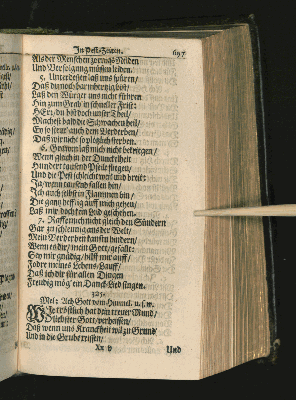 In Pest-Zeiten. 697
Als der Menschen
Und Verfolgung müssen leiden.
5. Unterdessen laß uns spüren/
Daß du noch barmhertzig bist/
Laß den Würger uns nicht
Hin zum Grab in schneller Frist:
HErr/ du bist doch unser Theil/
Machest bald die Schwachen heil/
Ey so steur auch dem Verderben/
Daß wir nicht so plötzlich sterben.
6. Gott/ laß mich nicht betriegen/
Wenn gleich in der Dunckelheit
Hundert tausend Pfeile fliegen/
Und die Pest schleicht weit und breit:
Ja/ wenn tausend fallen hin/
Ich auch selbst in Flammen bin/
Die gantz hefftig auff und gehen/
Laß mir doch kein Leid geschehen.
7. Raffe mich nicht gleich den Sündern
Gar zu schleunig aus der Welt/
Mein Verderben kanst du hindern/
Wenn es dir/ mein Gott/ gefällt:
Sey mir gnädig/ hilff mir auff/
meines Lebens-Lauff/
Daß ich dir für allen Dingen
Freudig mög' ein Danck-Lied singen.
Mel: Ach Gott vom Himmel. u.s.w.
Wie tröstlich hat dein treuer Mund/
O liebster Gott/ verheissen/
Daß wenn uns Kranckheit
Und in die Grube reissen/
Xx v Und